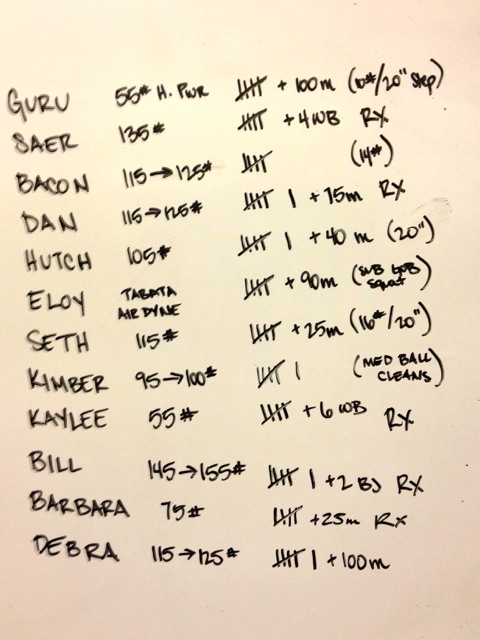 GURU 55# H. PWR 𝍸 + 100m (10#/20" Step)
SAER 135# 𝍸 + 4WB RX
BACON 115→125# 𝍸 (14#)
DAN 115→125# 𝍸 | + 75m RX
HUTCH 105# 𝍸 | + 40 m (20")
ELOY TABATA AIRDYNE 𝍸 + 90m (SUB GOB Squat)
SETH 115# 𝍸 + 25m (16#/20")
KIMBER 95→100# 𝍸 | (MED BALL CLEANS)
KAYLEE 55# 𝍸 + 6 WB RX
BILL 145→155# 𝍸 | + 2 BJ RX
BARBARA 75# 𝍸 + 25m RX
DEBRA 115→125# 𝍸 | + 100m